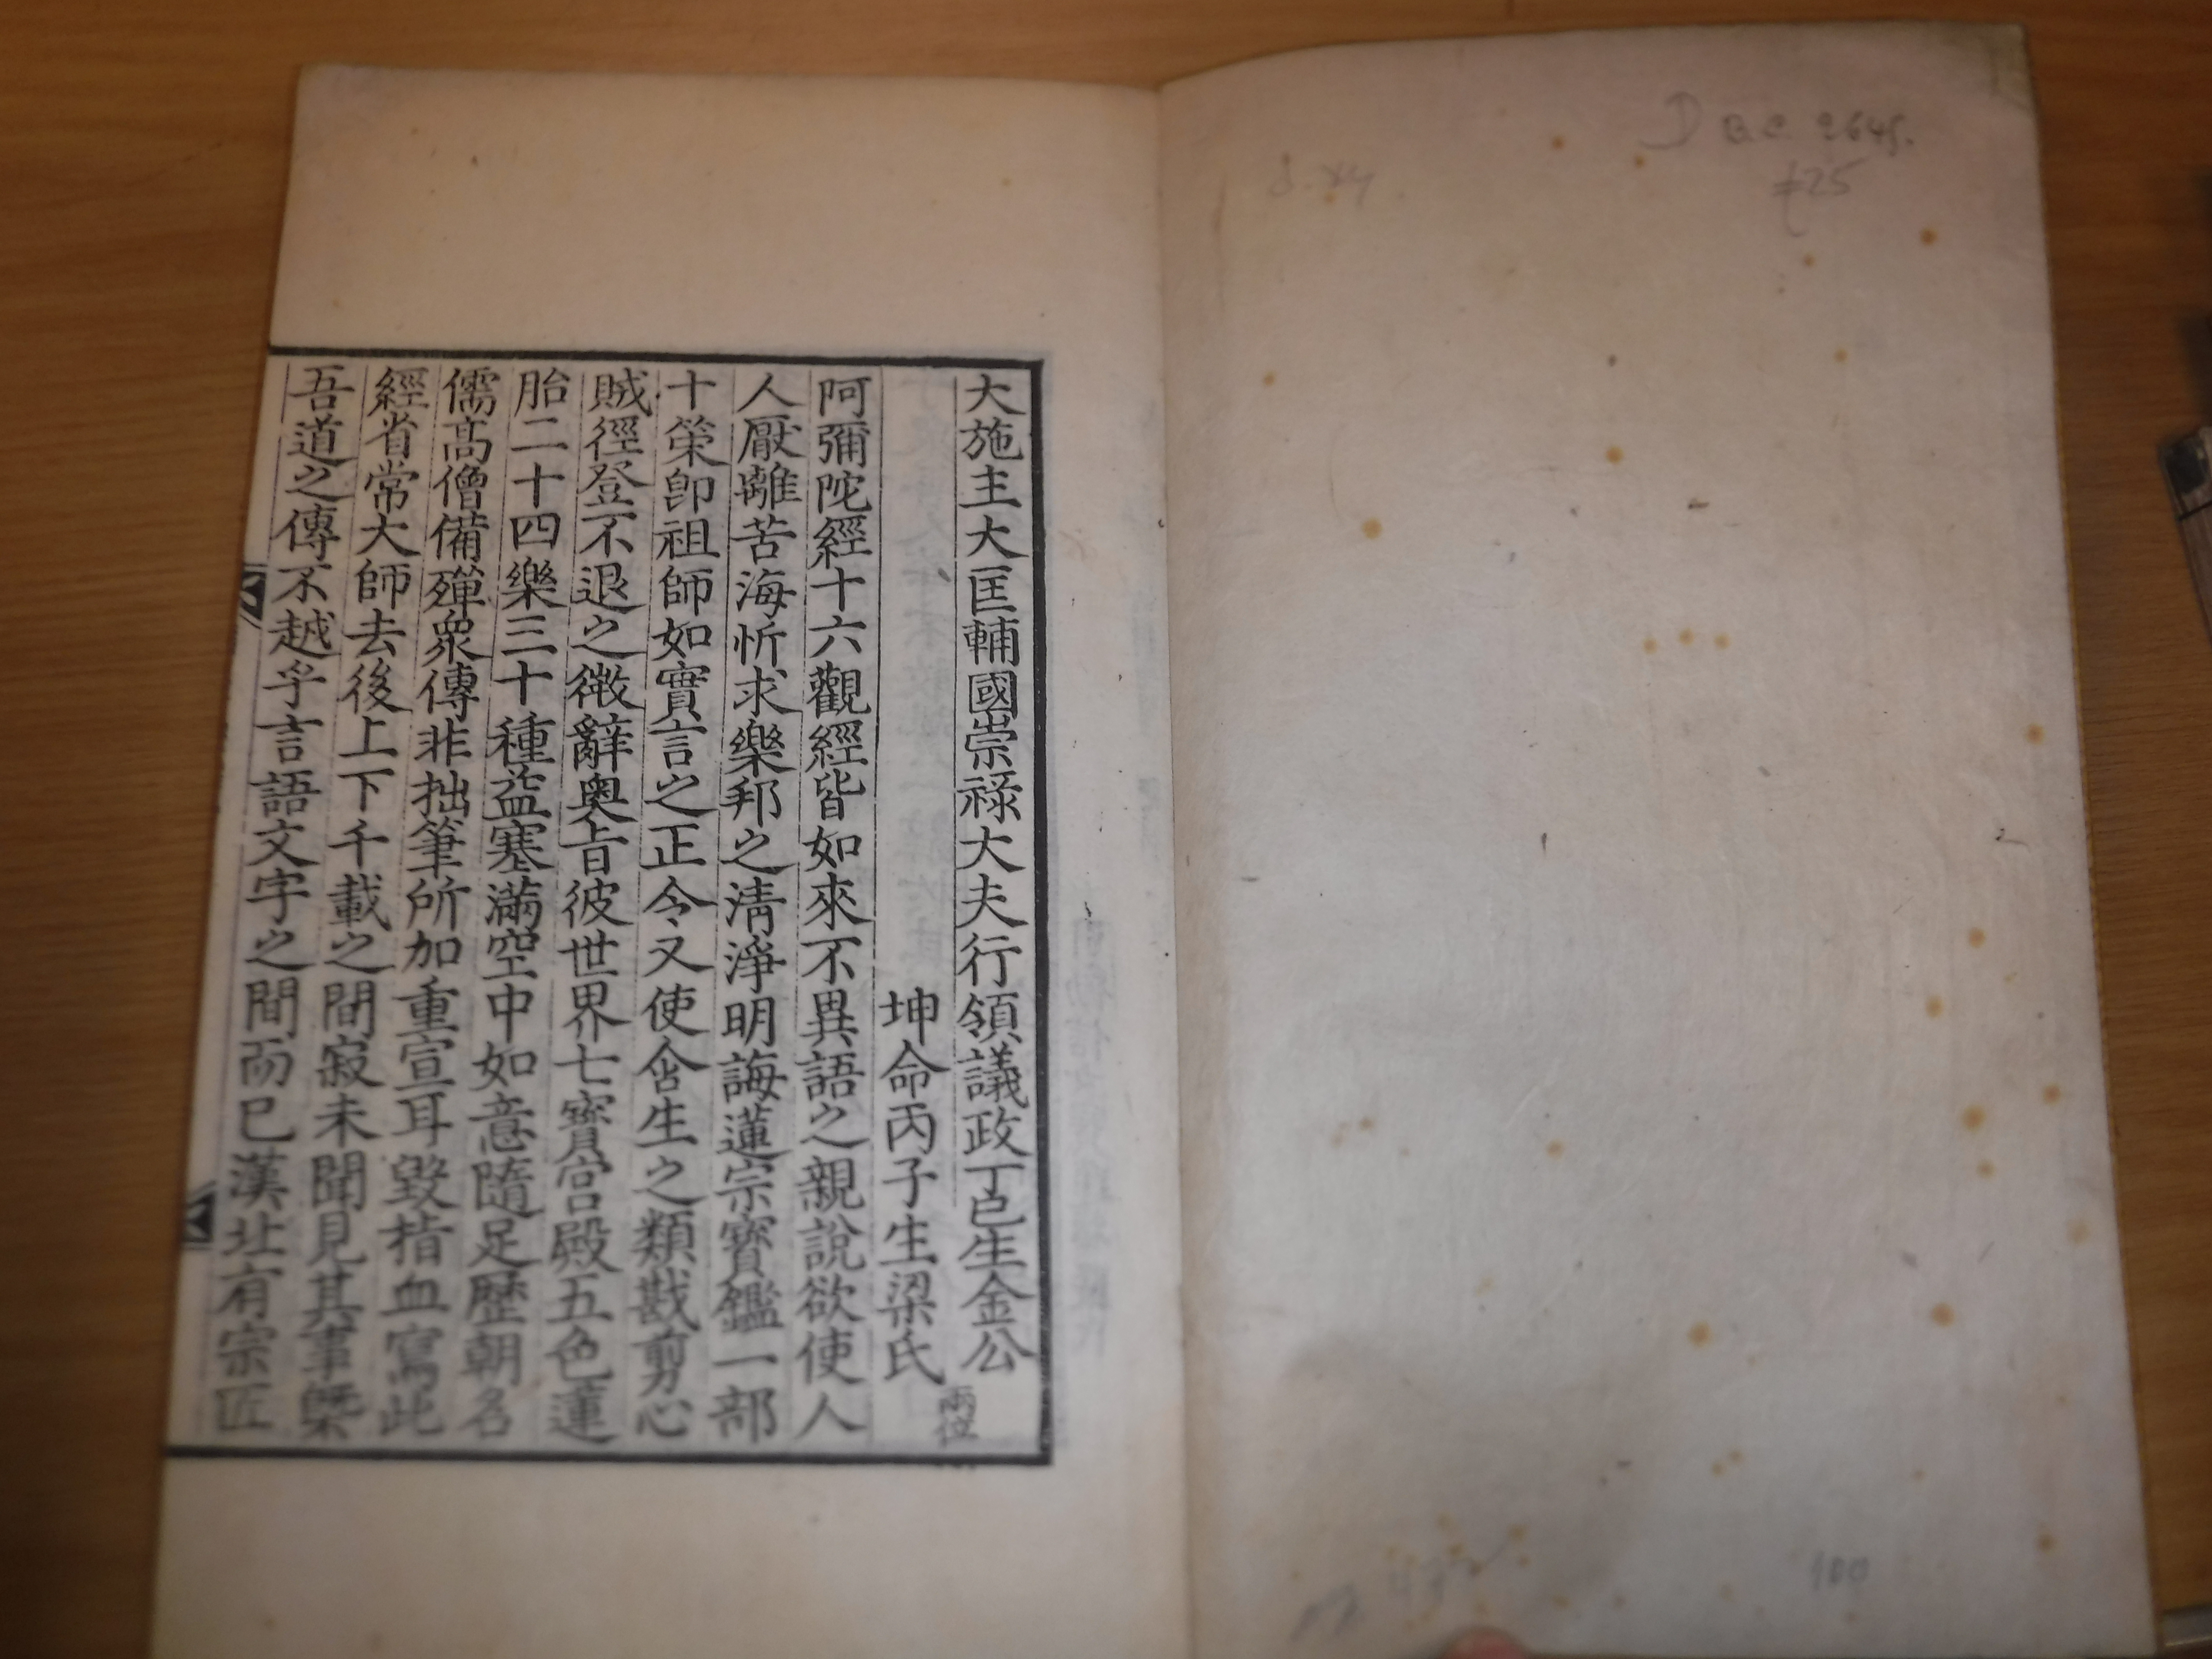 大施主大匡輔國崇祿大夫行領議政丁巳生金公
坤命丙子生梁氏
兩位
阿彌陀經十六觀經皆如來不異語之親說欲使人
人厭離苦海忻求樂邦之淸淨明誨蓮宗寶鑑一部
十䇿卽祖師如實言之正令又使含生之類戡剪心
賊徑登不退之徴辭奧旨彼世界七寶宮殿五色蓮
胎二十四樂三十種益塞滿空中如意隨足歷朝名
儒高僧備殫衆傳非拙筆所加重宣耳毀指血寫此
經省常大師去後上下千載之間寂未聞見其事槩
吾道之傳不越乎言語文字之間而已漢北有宗匠
D B.C. 2645.
£25
100